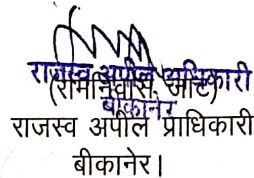 राजस्व अपील अधिकारी
(रामनिवास जाट)
बीकानेर
राजस्व अपील प्राधिकारी
बीकानेर।